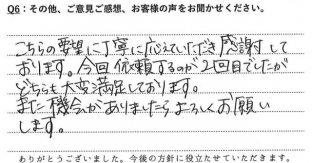 Q6：その他、ご意見ご感想、お客様の声をお聞かせください。
こちらの要望に丁寧に応えていただき感謝して
おります。今回依頼するのが2回目でしたが
どちらも大変満足しております。
また機会がありましたらよろしくお願い
します。
ありがとうございました。今後の方針に役立たせていただきます。